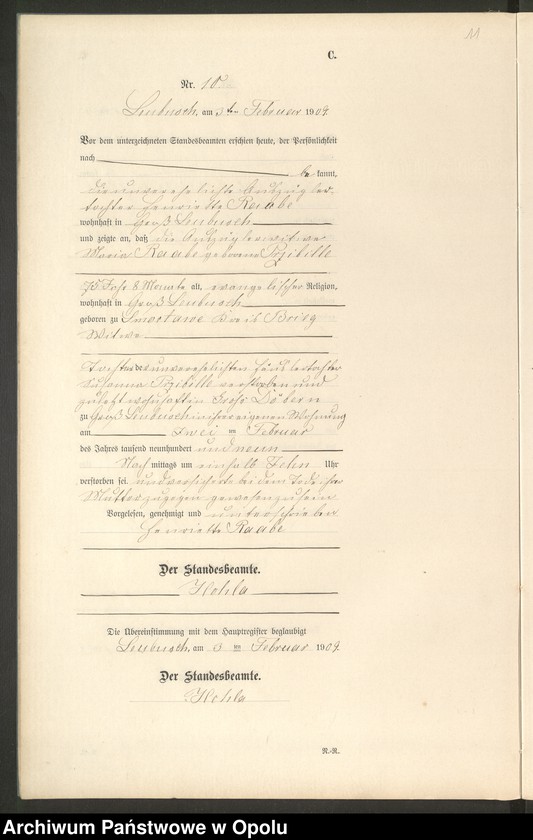 11
C.
Nr. 10.
Leubusch, am 3ten Februar 1909.
Vor dem unterzeichneten Standesbeamten erschien heute, der Persönlichkeit
nach
be kannt,
die unverehelichte Auszügler-
tochter Henriette Raabe
wohnhaft in Groß Leubusch
und zeigte an, daß die Auszüglerwitwe
Maria Raabe geborene Pzibille
75 Jahr 8 Monate alt, evangelischer Religion,
wohnhaft in Groß Leubusch
geboren zu Smortawe Kreis Brieg
Witwe
Tochter der unverehelichten Häuslertochter
Susanna Pzibille verstorben und
zuletzt wohnhaft in Gross Döbern
zu Groß Leubusch in ihrer eigenen Wohnung
am zwei ten Februar
des Jahres tausend neunhundert und neun
Nach mittags um einhalb Zehn Uhr
verstorben sei und versicherte bei dem Tode ihrer
Mutter zugegen gewesen zu sein
Vorgelesen, genehmigt und unterschrieben
Henriette Raabe
Der Standesbeamte.
Hohla
Die Übereinstimmung mit dem Hauptregister beglaubigt
Leubusch, am 3 ten Februar 1909.
Der Standesbeamte.
Hohla
N.-R.
Archiwum Państwowe w Opolu